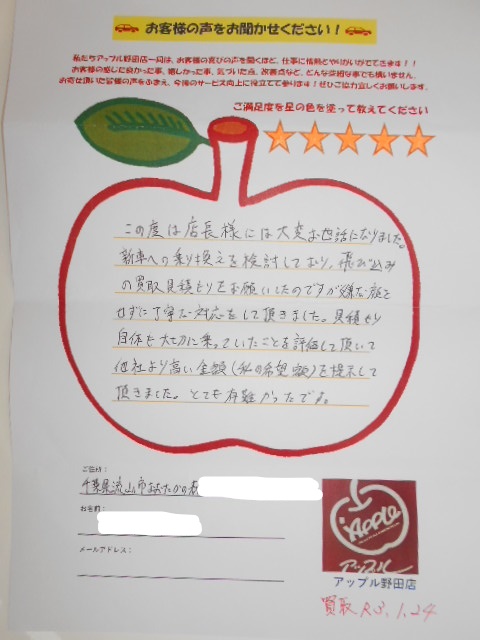 お客様の声をお聞かせください！
私たちアップル野田店一同は、お客様の喜びの声を聞くほど、仕事に情熱とやりがいがでてきます！！
お客様の感じた良かった事、嬉しかった事、気づいた点、改善点など、どんな些細な事でも構いません。
お寄せ頂いた皆様の声をふまえ、今後のサービス向上に役立てて参ります！ぜひご協力宜しくお願いします。
ご満足度を星の色を塗って教えてください
この度は店長様には大変お世話になりました。
新車への乗り換えを検討しており、飛び込み
の買取見積もりをお願いしたのですが嫌な顔を
せずに丁寧な対応をして頂きました。見積もり
自体も大切に乗っていたことを評価して頂いて
他社より高い金額(私の希望額)を提示して
頂きました。とても有難かったです。
ご住所：
千葉県流山市おおたかの森
お名前：
メールアドレス：
APPLE
アップル
アップル野田店
買取 R3.1.24